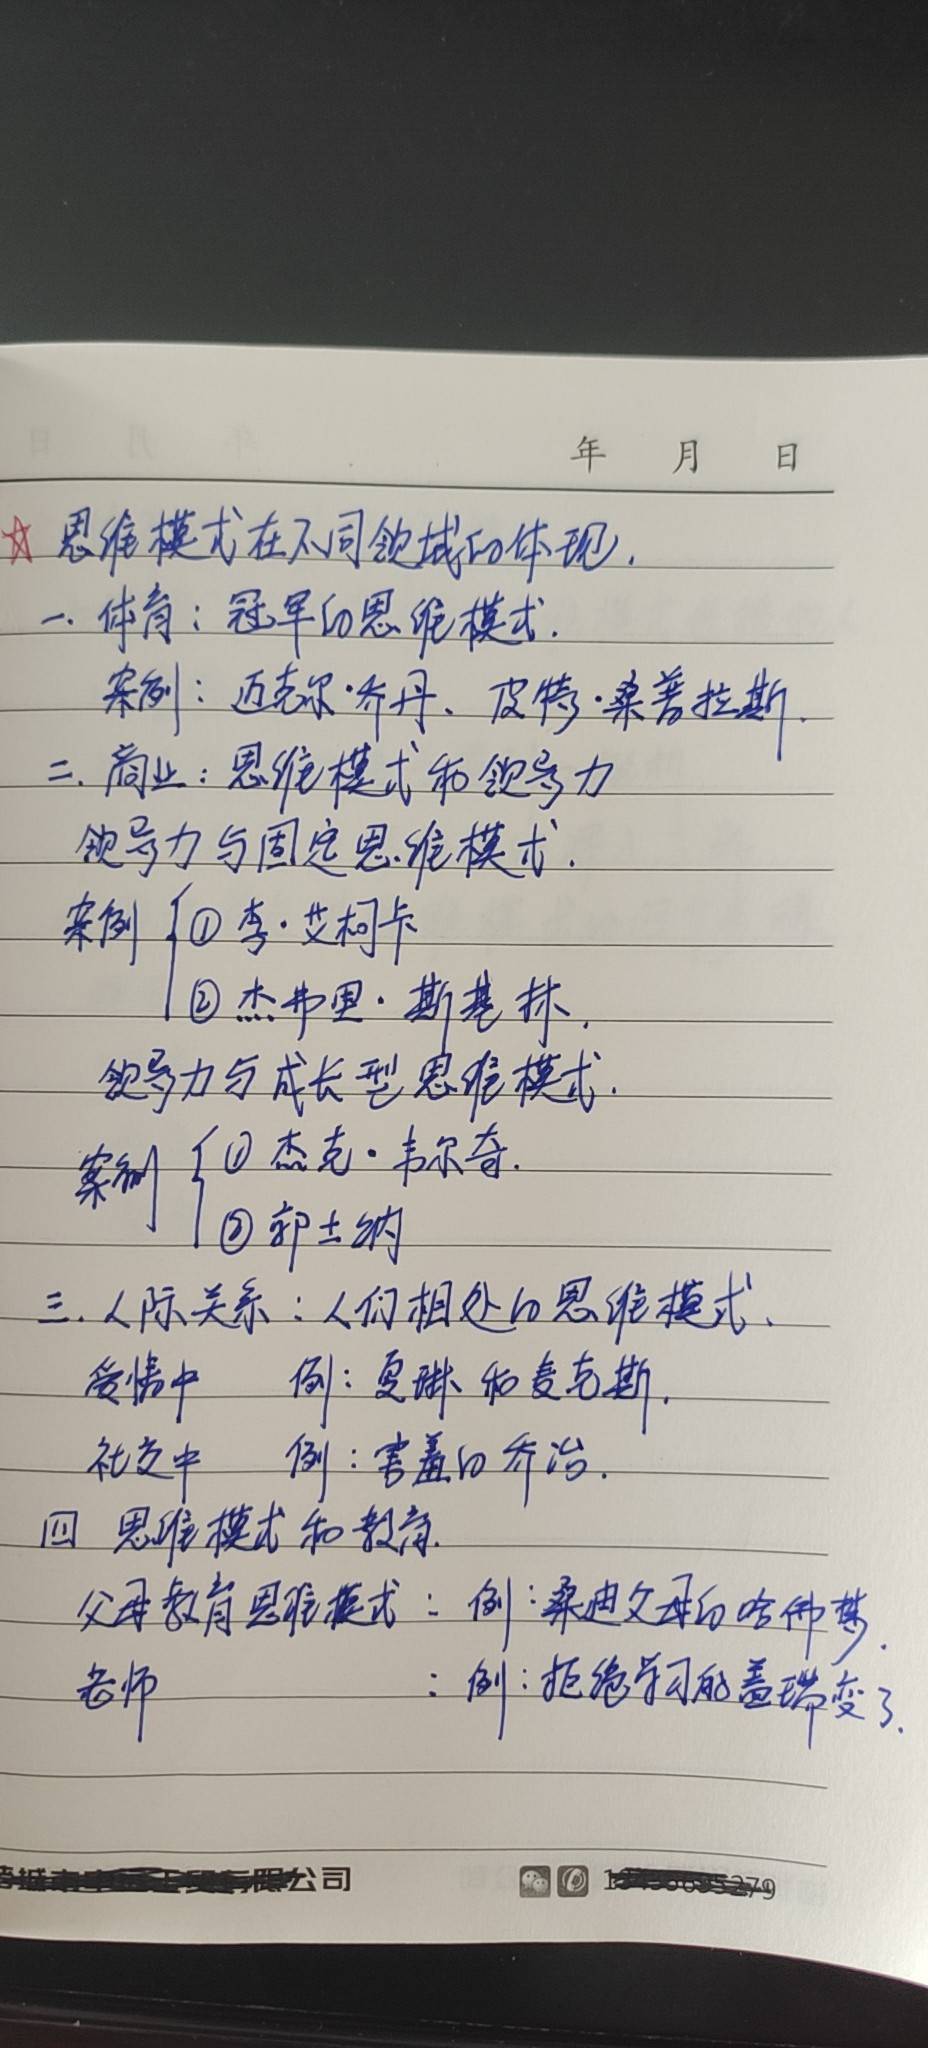 年 月 日
☆ 思维模式在不同领域的体现.
一. 体育: 冠军的思维模式.
案例: 迈克尔·乔丹、皮特·桑普拉斯.
二. 商业: 思维模式和领导力
领导力与固定思维模式.
案例 ① 李·艾柯卡
② 杰弗里·斯基林.
领导力与成长型思维模式.
案例 ① 杰克·韦尔奇.
② 郭士纳
三. 人际关系: 人们相处的思维模式.
爱情中 例: 夏琳和麦克斯.
社交中 例: 害羞的乔治.
四 思维模式和教育.
父母教育思维模式: 例: 桑迪父母的哈佛梦.
老师 : 例: 拒绝学习的盖瑞变了.
限公司